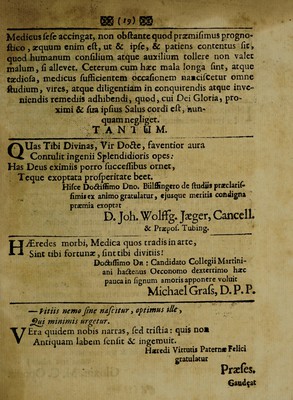 (19)
Medicus sese accingat, non obstante quod præmisimus progno-
stico, æquum enim est, ut & ipse, & patiens contentus sit,
quod humanum consilium atque auxilium tollere non valet
malum, si allevet. Ceterum cum hæc mala longa sint, atque
tædiosa, medicus sufficientem occasionem nanciscetur omne
studium, vires, atque diligentiam in conquirendis atque inve-
niendis remediis adhibendi, quod, cui Dei Gloria, pro-
ximi & sua ipsius Salus cordi est, nun-
quam negliget.
TANTUM.
QUas Tibi Divinas, Vir Docte, faventior aura
Contulit ingenii Splendidioris opes:
Has Deus eximiis porro successibus ornet,
Teque exoptata prosperitate beet.
Hisce Doctissimo Dno. Bülffingero de studiis præclaris-
simis ex animo gratulatur, ejusque meritis condigna
præmia exoptat
D. Joh. Wolffg. Jæger, Cancell.
& Præpos. Tubing.
HÆredes morbi, Medica quos tradis in arte,
Sint tibi fortunæ, sint tibi divitiis!
Doctissimo Dn: Candidato Collegii Martini-
ani hactenus Oeconomo dexterrimo hæc
pauca in signum amoris apponere voluit
Michael Grass, D. P. P.
— Vitiis nemo sine nascitur, optimus ille,
Qui minimis urgetur.
VEra quidem nobis narras, sed tristia: quis non
Antiquam labem sensit & ingemuit.
Hæredi Virtutis Paternæ Felici
gratulatur
Præses.
Gaudeat